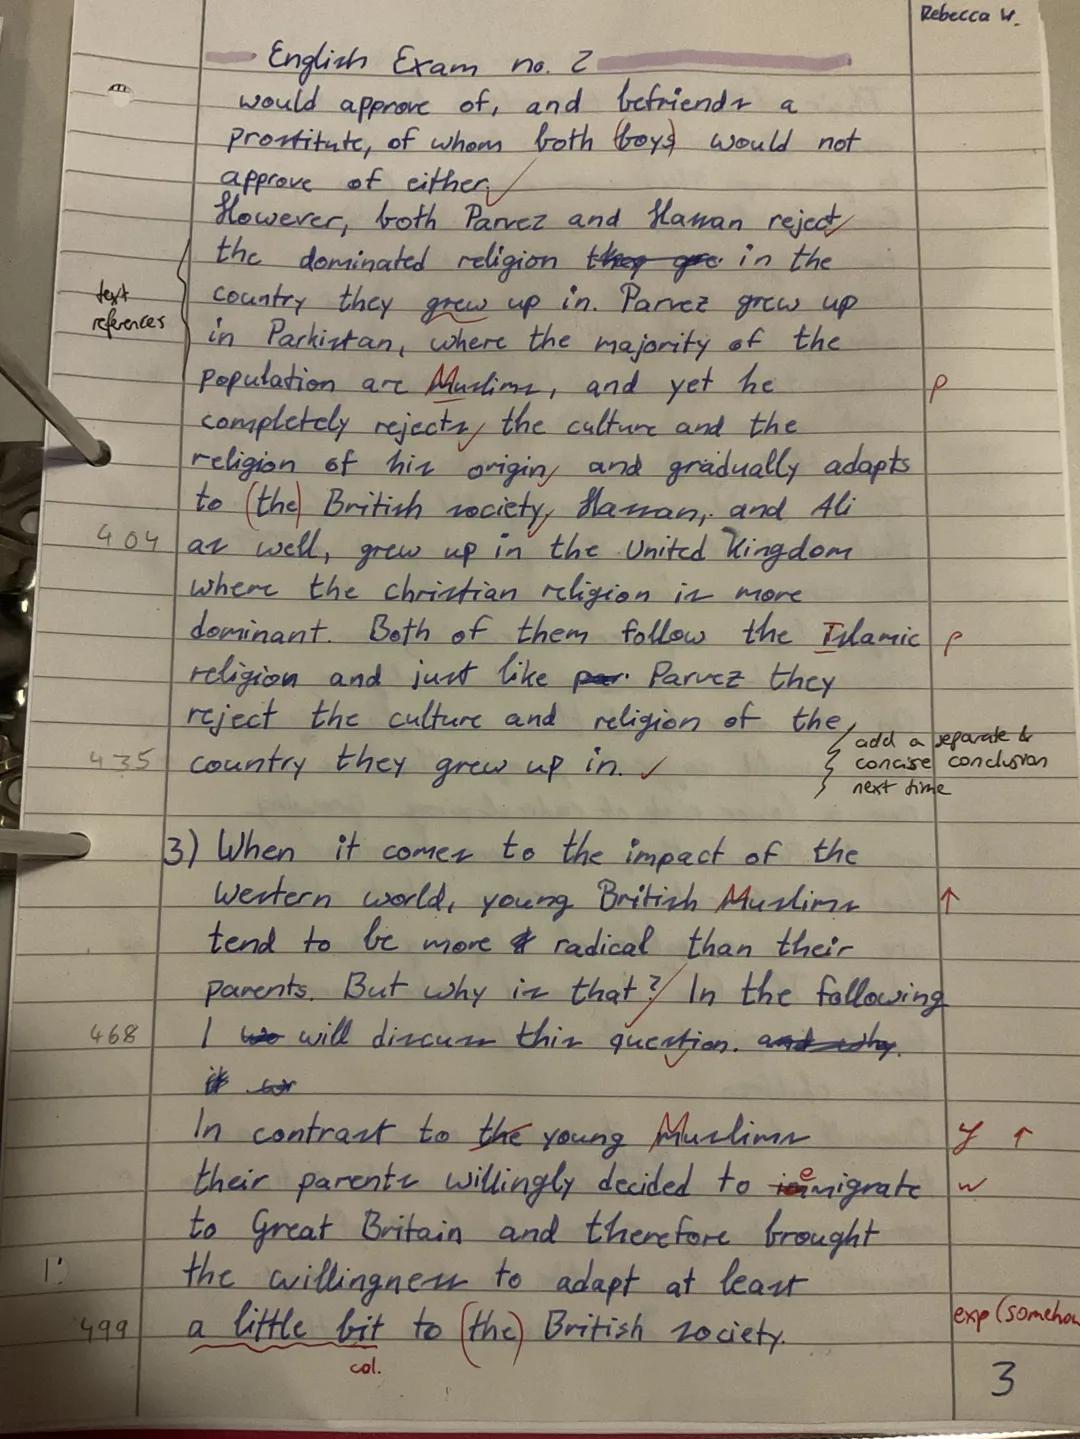 Rebecca W.
English Exam no. 2
would approve of, and befriends a
prostitute, of whom both (boys) would not
approve of either.
However, both Parvez and Hassan reject
the dominated religion they are in the
text
references
country they grew up in. Parvez grew up
in Parkistan, where the majority of the
population are Muslims, and yet he
p
completely rejects, the culture and the
religion of his origin, and gradually adapts
to (the) British society, Hassan, and Ali
404
as well, grew up in the United Kingdom
where the christian religion is more
dominant. Both of them follow the Islamic
religion and just like par. Parvez they
reject the culture and religion of the
435
country they grew up in.
add a separate &
concise conclusion
next time
3) When it comes to the impact of the
Western world, young British Muslims
tend to be more radical than their
parents. But why is that? In the following
468
I will discuss this question. and why.
In contrast to the young Muslims
their parents willingly decided to emigrate
to Great Britain and therefore brought
the willingness to adapt at least
499
a little bit to (the) British society.
exp (somehow
col.
3